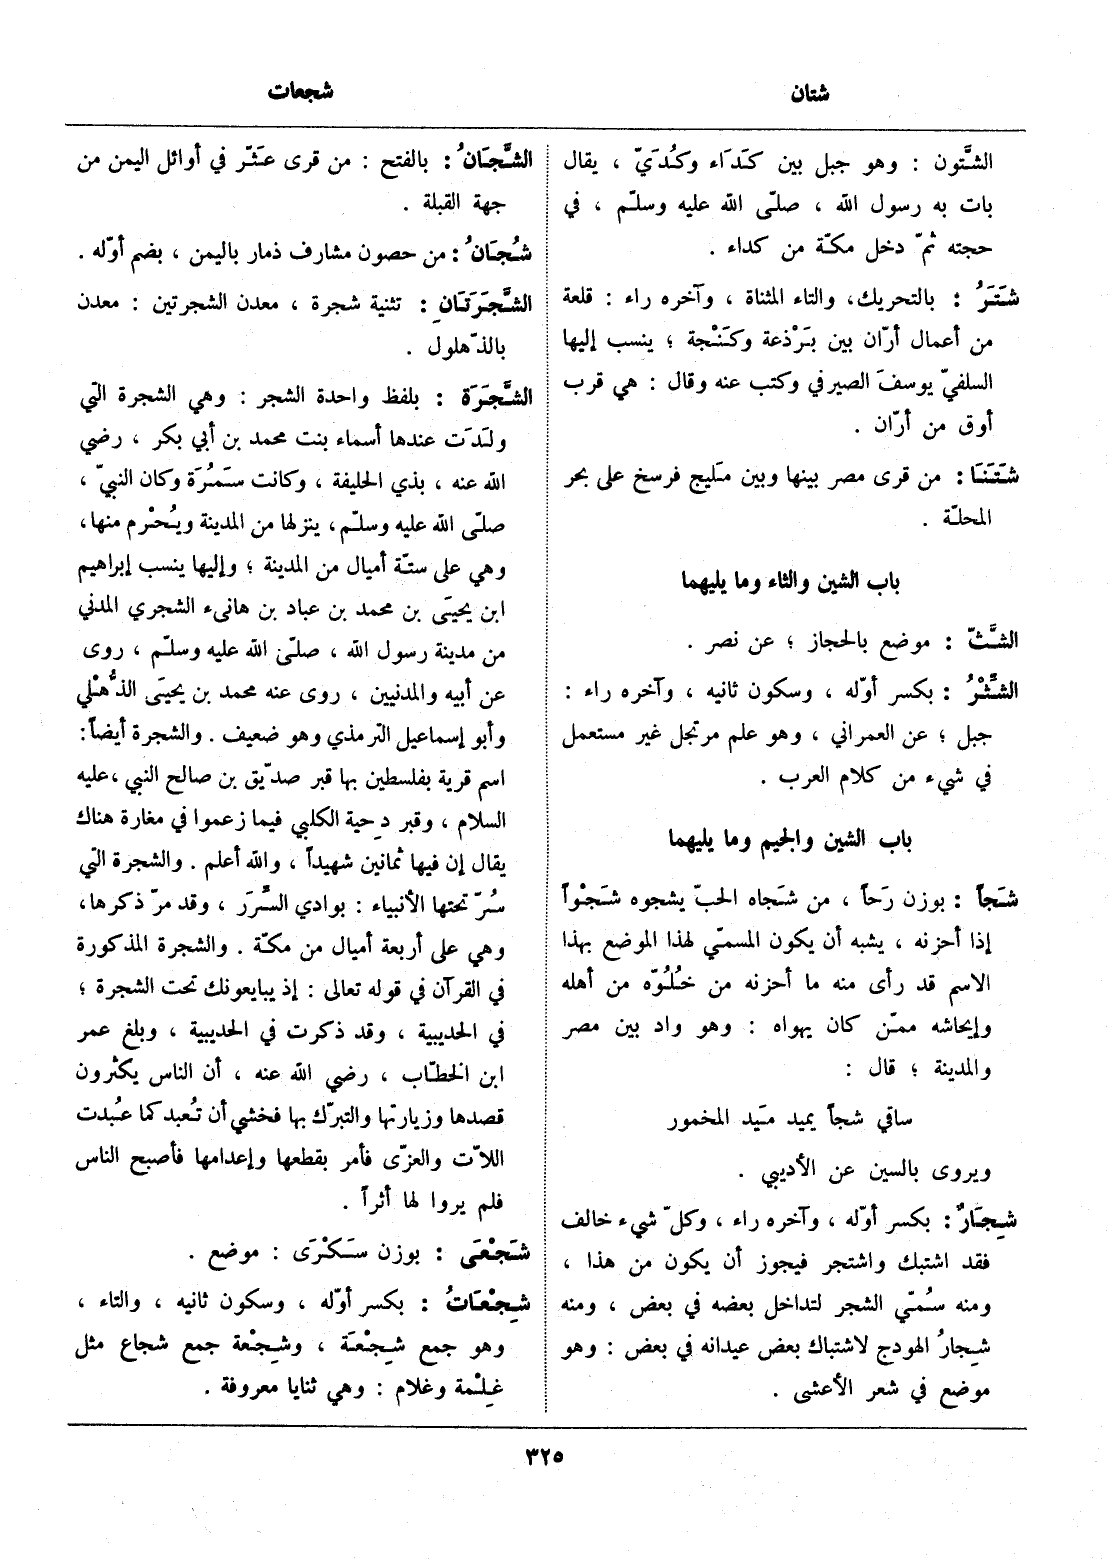 شتان
شجعات
الشَّتون : وهو جبل بين كَدَاء وكُدَيّ ، يقال
بات به رسول الله ، صلّى الله عليه وسلّم ، في
حجته ثمّ دخل مكّة من كداء .
شَتَرُ : بالتحريك، والتاء المثناة ، وآخره راء : قلعة
من أعمال أرّان بين بَرْذعة وكَنْجة ؛ ينسب إليها
السلفيّ يوسفَ الصيرفي وكتب عنه وقال : هي قرب
أوق من أرّان .
شَتَنَا : من قرى مصر بينها وبين مَليج فرسخ على بحر
المحلّة .
باب الشين والثاء وما يليهما
الشَّثّ : موضع بالحجاز ؛ عن نصر .
الشِّثْرُ : بكسر أوّله ، وسكون ثانيه ، وآخره راء :
جبل ؛ عن العمراني ، وهو علم مرتجل غير مستعمل
في شيء من كلام العرب .
باب الشين والجيم وما يليهما
شَجاً : بوزن رَحاً ، من شَجاه الحبّ يشجوه شَجْواً
إذا أحزنه ، يشبه أن يكون المسمّي لهذا الموضع بهذا
الاسم قد رأى منه ما أحزنه من خُلُوّه من أهله
وإيحاشه ممّن كان يهواه : وهو واد بين مصر
والمدينة ؛ قال :
ساقي شجاً يميد مَيد المخمور
ويروى بالسين عن الأديبي .
شِجَارٌ : بكسر أوّله ، وآخره راء ، وكلّ شيء خالف
فقد اشتبك واشتجر فيجوز أن يكون من هذا ،
ومنه سُمّي الشجر لتداخل بعضه في بعض ، ومنه
شِجارُ الهودج لاشتباك بعض عيدانه في بعض : وهو
موضع في شعر الأعشى .
الشَّجَانُ : بالفتح : من قرى عَثّر في أوائل اليمن من
جهة القبلة .
شُجَانُ : من حصون مشارف ذمار باليمن ، بضم أوّله .
الشَّجَرَتَانِ : تثنية شجرة ، معدن الشجرتين : معدن
بالذّهلول .
الشَّجَرَة : بلفظ واحدة الشجر : وهي الشجرة التي
ولَدَت عندها أسماء بنت محمد بن أبي بكر ، رضي
الله عنه ، بذي الحليفة ، وكانت سَمُرَة وكان النبيّ ،
صلّى الله عليه وسلّم، ينزلها من المدينة ويُحْرم منها،
وهي على ستّة أميال من المدينة ؛ وإليها ينسب إبراهيم
ابن يحيَى بن محمد بن عباد بن هانىء الشجري المدني
من مدينة رسول الله ، صلّى الله عليه وسلّم ، روى
عن أبيه والمدنيين ، روى عنه محمد بن يحيَى الذُّهْلي
وأبو إسماعيل الترمذي وهو ضعيف . والشجرة أيضاً:
اسم قرية بفلسطين بها قبر صدّيق بن صالح النبي ،عليه
السلام ، وقبر دِحية الكلبي فيما زعموا في مغارة هناك
يقال إن فيها ثمانين شهيداً ، والله أعلم . والشجرة التي
سُرّ تحتها الأنبياء : بوادي السُّرَر ، وقد مرّ ذكرها،
وهي على أربعة أميال من مكّة . والشجرة المذكورة
في القرآن في قوله تعالى : إذ يبايعونك تحت الشجرة ؛
في الحديبية ، وقد ذكرت في الحديبية ، وبلغ عمر
ابن الخطّاب ، رضي الله عنه ، أن الناس يكثرون
قصدها وزيارتها والتبرّك بها فخشي أن تُعبد كما عُبدت
اللاّت والعزّى فأمر بقطعها وإعدامها فأصبح الناس
فلم يروا لها أثراً .
شَجْعَى : بوزن سَكْرَى : موضع .
شِجْعَاتُ : بكسر أوّله ، وسكون ثانيه ، والتاء ،
وهو جمع شِجْعَة ، وشِجْعة جمع شجاع مثل
غِلْمة وغلام : وهي ثنايا معروفة .
٣٢٥